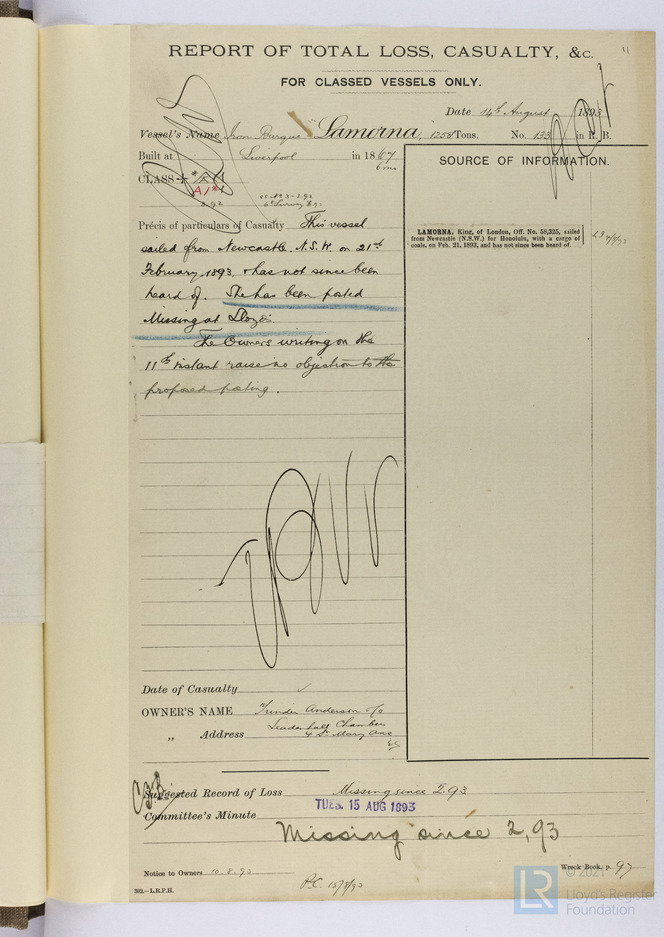 11
REPORT OF TOTAL LOSS, CASUALTY, &c.
FOR CLASSED VESSELS ONLY.
Date 14th August 1893
Vessel's Name Iron Barque Lamorna, 1258 Tons. No. 133 in R. B.
Built at Liverpool in 1867
6 ms
CLASS
A1
2.92
Précis of particulars of Casualty This vessel
sailed from Newcastle. N.S.W. on 21st
February 1893. & has not since been
heard of. She has been posted
Missing at Lloyds.
The Owners writing on the
11th instant raise no objection to the
proposed posting.
SOURCE OF INFORMATION.
LAMORNA, King, of London, Off. No. 58,325, sailed
from Newcastle (N.S.W.) for Honolulu, with a cargo of
coals, on Feb. 21, 1893, and has not since been heard of.
Date of Casualty
OWNER'S NAME Trinder Anderson & Co
Leadenhall Chambers
„ Address 4 St. Mary Axe
EC
Suggested Record of Loss Missing since 2.93
TUES. 15 AUG 1893
Committee's Minute
Missing since 2,93
Notice to Owners 10.8.93
Wreck Book, p. 97
P.C. 15/8/93
302.—L.R.P.H.
LR
© 2021
Lloyd's Register
Foundation